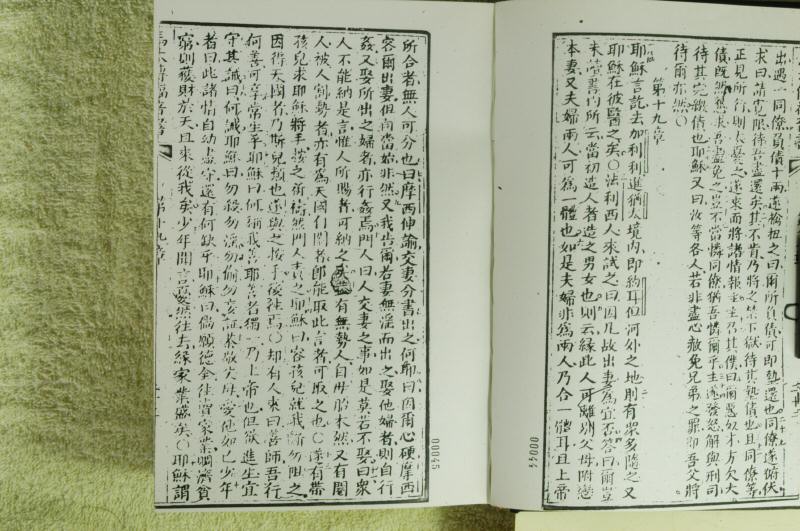 出遇一同僚負債十両遂搶扭之曰爾所負債可即墊還也同僚遂俯伏
求曰請寛限待吾盡還矣其不肯乃將之禁下獄待其墊債也且同僚等
正見所行則太憂之遂來而將諸情報主主乃其僕曰爾惡奴才方欠大
債既然懇求吾盡免之豈不當憐同僚猶吾憐爾乎主遂發怒解與刑司
待其完繳債也耶穌又曰汝等各人若非盡心赦免兄弟之罪即吾父將
待爾亦然〇
第十九章
耶穌言訖去加利利進猶太境内即約耳但河外之地則有衆多隨之又
耶穌在彼醫之矣〇法利西人來試之曰因凡故出妻為宜否答曰爾豈
未讀書内所云當初造人者造之男女也則云縁此人可離别父母附戀
本妻又夫婦兩人可為一體也如是夫婦非為兩人乃合一體耳且上帝
00044
所合者無人可分也曰摩西伸諭交妻分書出之何耶曰因爾心硬摩西
容爾出妻但向當始非然又我告爾若妻無淫而出之娶他婦者則自行
姦又娶所出之婦者亦行姦焉門人曰人交妻之事如是莫若不娶曰衆
人不能納是言惟人所賜者可納之或有無勢人自母胎本然又有閹
人被人割勢者亦有為天國自閹者即能取此言者可取之也〇遂有帶
孩兒求耶穌將手按之祈禱然門人責之耶穌曰容孩兒就我而勿阻之
因得天國者乃斯兒類也遂與之按手後往焉〇却有人來曰善師吾行
何善可享常生乎耶穌曰何稱我善耶善者獨一乃上帝也但欲進生宜
守其誡曰何誡耶穌曰勿殺勿淫勿偷勿妄証恭敬父母愛他如己少年
者曰此諸情自幼盡守還有何缺乎耶穌曰倘願德全往賣家業賙濟貧
窮則獲財於天且來從我矣少年聞言憂然往去縁家業盛矣〇耶穌謂
第十九章
00045